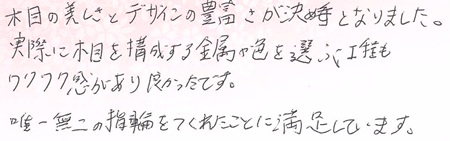 木目の美しさとデザインの豊富さが決め手となりました。
実際に木目を構成する金属や色を選ぶ工程も
ワクワク感があり良かったです。
唯一無二の指輪をつくれたことに満足しています。